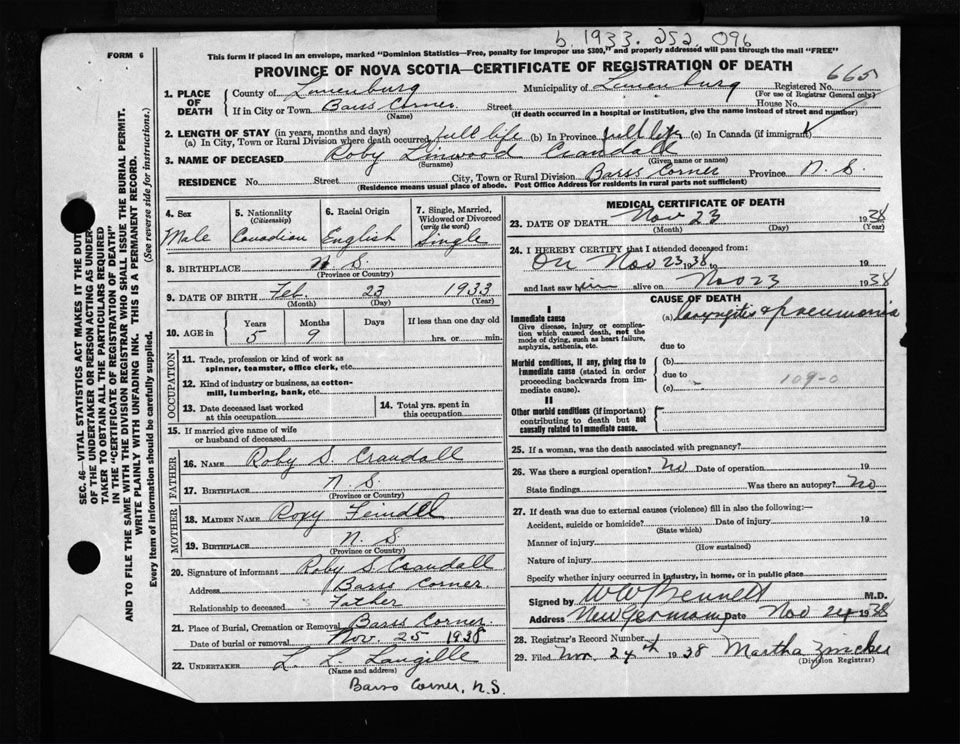 b. 1933. 252. 096
FORM 6
This form if placed in an envelope, marked "Dominion Statistics—Free, penalty for improper use $300," and properly addressed will pass through the mail "FREE"
PROVINCE OF NOVA SCOTIA—CERTIFICATE OF REGISTRATION OF DEATH
665
SEC. 46—VITAL STATISTICS ACT MAKES IT THE DUTY
OF THE UNDERTAKER OR PERSON ACTING AS UNDER-
TAKER TO OBTAIN ALL THE PARTICULARS REQUIRED
IN THE "CERTIFICATE OF REGISTRATION OF DEATH"
AND TO FILE THE SAME WITH THE DIVISION REGISTRAR WHO SHALL ISSUE THE BURIAL PERMIT.
WRITE PLAINLY WITH UNFADING INK. THIS IS A PERMANENT RECORD.
Every item of information should be carefully supplied. (See reverse side for instructions.)
1. PLACE OF DEATH County of Lunenburg Municipality of Lunenburg Registered No.
(For use of Registrar General only)
If in City or Town Barss Corner Street House No.
(Name) (If death occurred in a hospital or institution, give name instead of street and number)
2. LENGTH OF STAY (in years, months and days)
(a) In City, Town or Rural Division where death occurred full life (b) In Province full life (c) In Canada (if immigrant)
3. NAME OF DECEASED Roby Linwood Crandall
(Surname) (Given name or names)
RESIDENCE No. Street City, Town or Rural Division Barss Corner Province N. S.
(Residence means usual place of abode. Post Office Address for residents in rural parts not sufficient)
4. Sex 5. Nationality (Citizenship) 6. Racial Origin 7. Single, Married, Widowed or Divorced (write the word)
Male Canadian English Single
8. BIRTHPLACE N. S.
(Province or Country)
9. DATE OF BIRTH Feb. 23 1933
(Month) (Day) (Year)
10. AGE in Years Months Days If less than one day old
5 9 hrs. or min.
OCCUPATION
11. Trade, profession or kind of work as
spinner, teamster, office clerk, etc.
12. Kind of industry or business, as cotton-
mill, lumbering, bank, etc.
13. Date deceased last worked
at this occupation
14. Total yrs. spent in
this occupation
15. If married give name of wife
or husband of deceased
FATHER
16. NAME Roby S. Crandall
17. BIRTHPLACE N. S.
(Province or Country)
MOTHER
18. MAIDEN NAME Roxy Feindel
19. BIRTHPLACE N. S.
(Province or Country)
20. Signature of informant Roby S. Crandall
Address Barss Corner.
Relationship to deceased Father
21. Place of Burial, Cremation or Removal Barss Corner.
Date of burial or removal Nov. 25 1938
22. UNDERTAKER L. L. Langille
(Name and address)
Barss Corner, N.S.
MEDICAL CERTIFICATE OF DEATH
23. DATE OF DEATH Nov 23 1938
(Month) (Day) (Year)
24. I HEREBY CERTIFY that I attended deceased from:
On Nov 23 1938, to 19
and last saw him alive on Nov 23 1938
CAUSE OF DEATH
I
Immediate cause
Give disease, injury or complica-
tion which caused death, not the
mode of dying, such as heart failure,
asphyxia, asthenia, etc.
(a) Laryngitis & pneumonia
due to
Morbid conditions, if any, giving rise to
immediate cause (stated in order
proceeding backwards from im-
mediate cause).
(b)
due to
(c) 109-0
II
Other morbid conditions (if important)
contributing to death but not
causally related to immediate cause.
25. If a woman, was the death associated with pregnancy?
26. Was there a surgical operation? No Date of operation 19
State findings Was there an autopsy? No
27. If death was due to external causes (violence) fill in also the following:—
Accident, suicide or homicide? Date of injury 19
(State which)
Manner of injury
(How sustained)
Nature of injury
Specify whether injury occurred in industry, in home, or in public place
Signed by W W Bennett M.D.
Address New Germany Date Nov 24 1938
28. Registrar's Record Number
29. Filed Nov. 24th 1938 Martha Zinck
(Division Registrar)